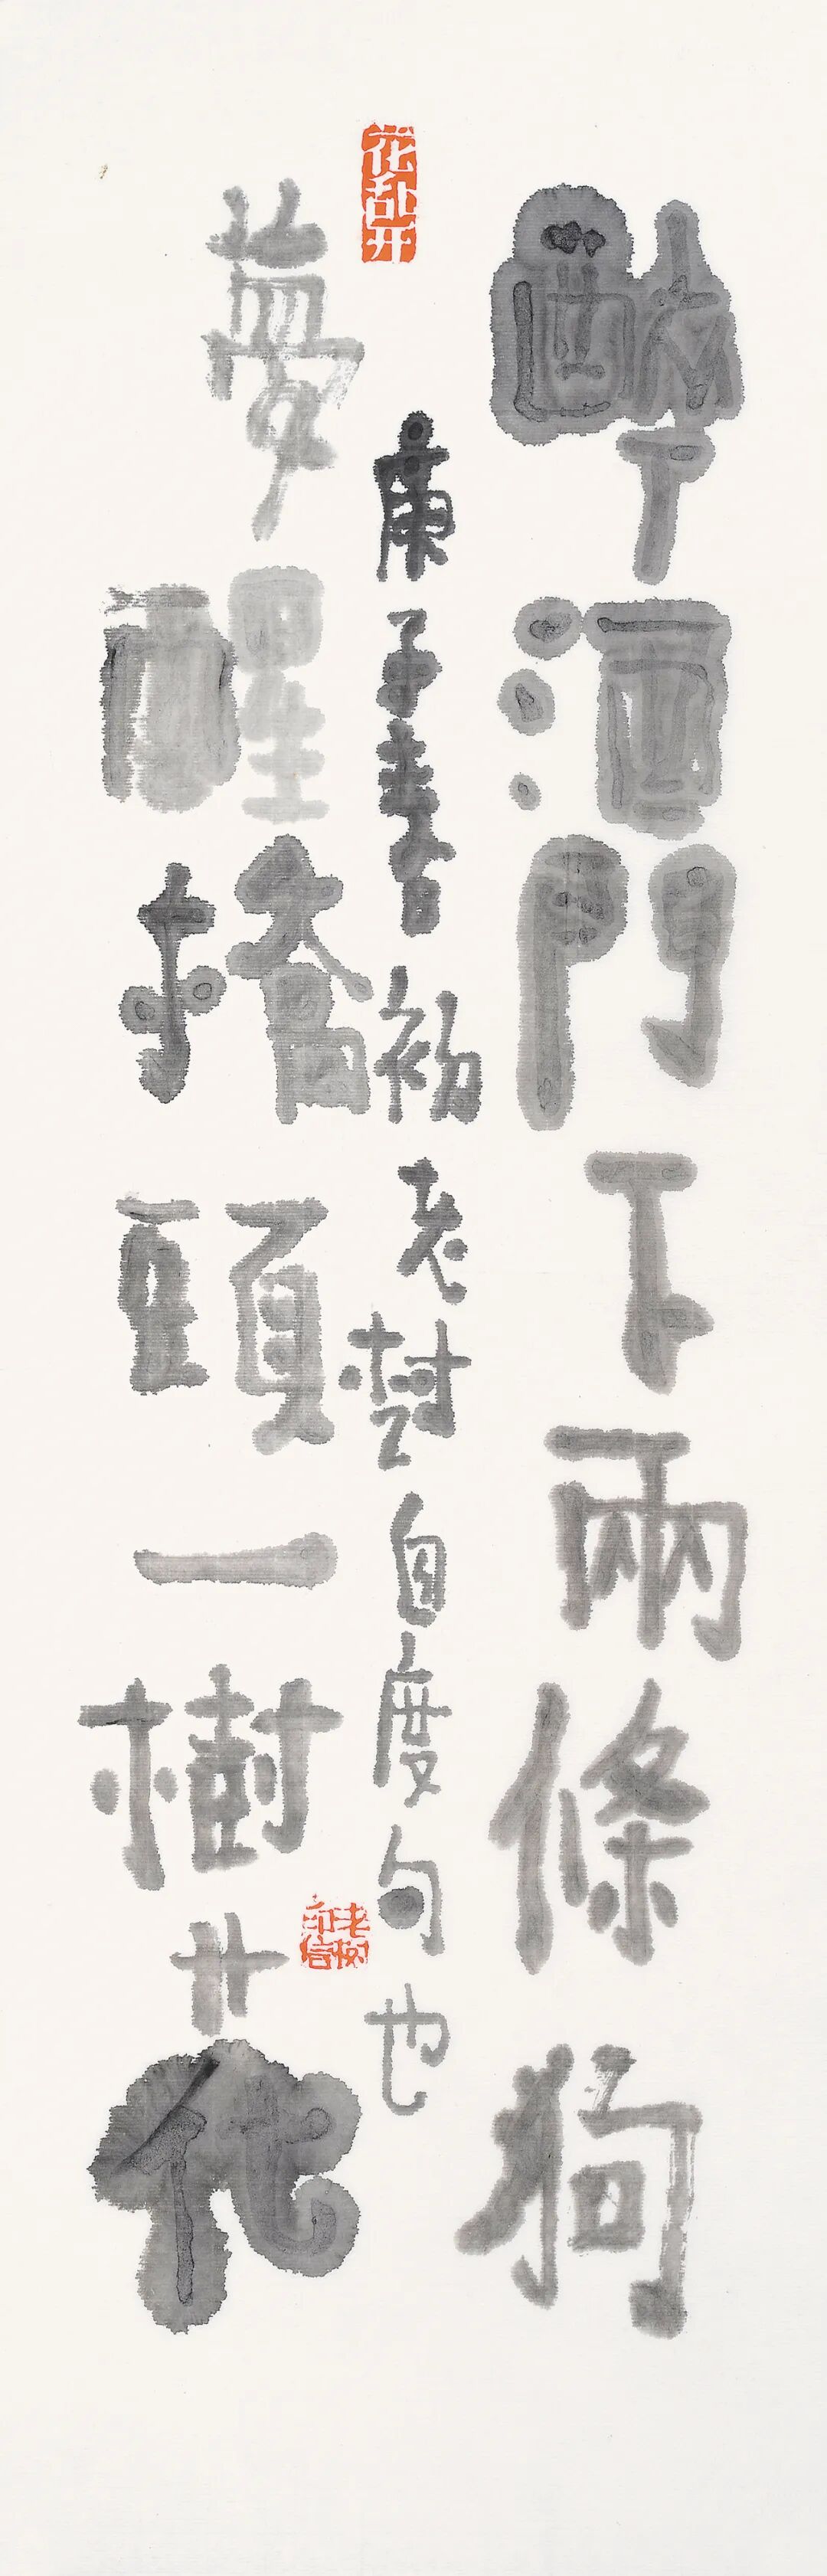 醉酒門下兩條狗
夢醒橋頭一樹花
庚子春初老樹自度句也
花乱开
老树印信